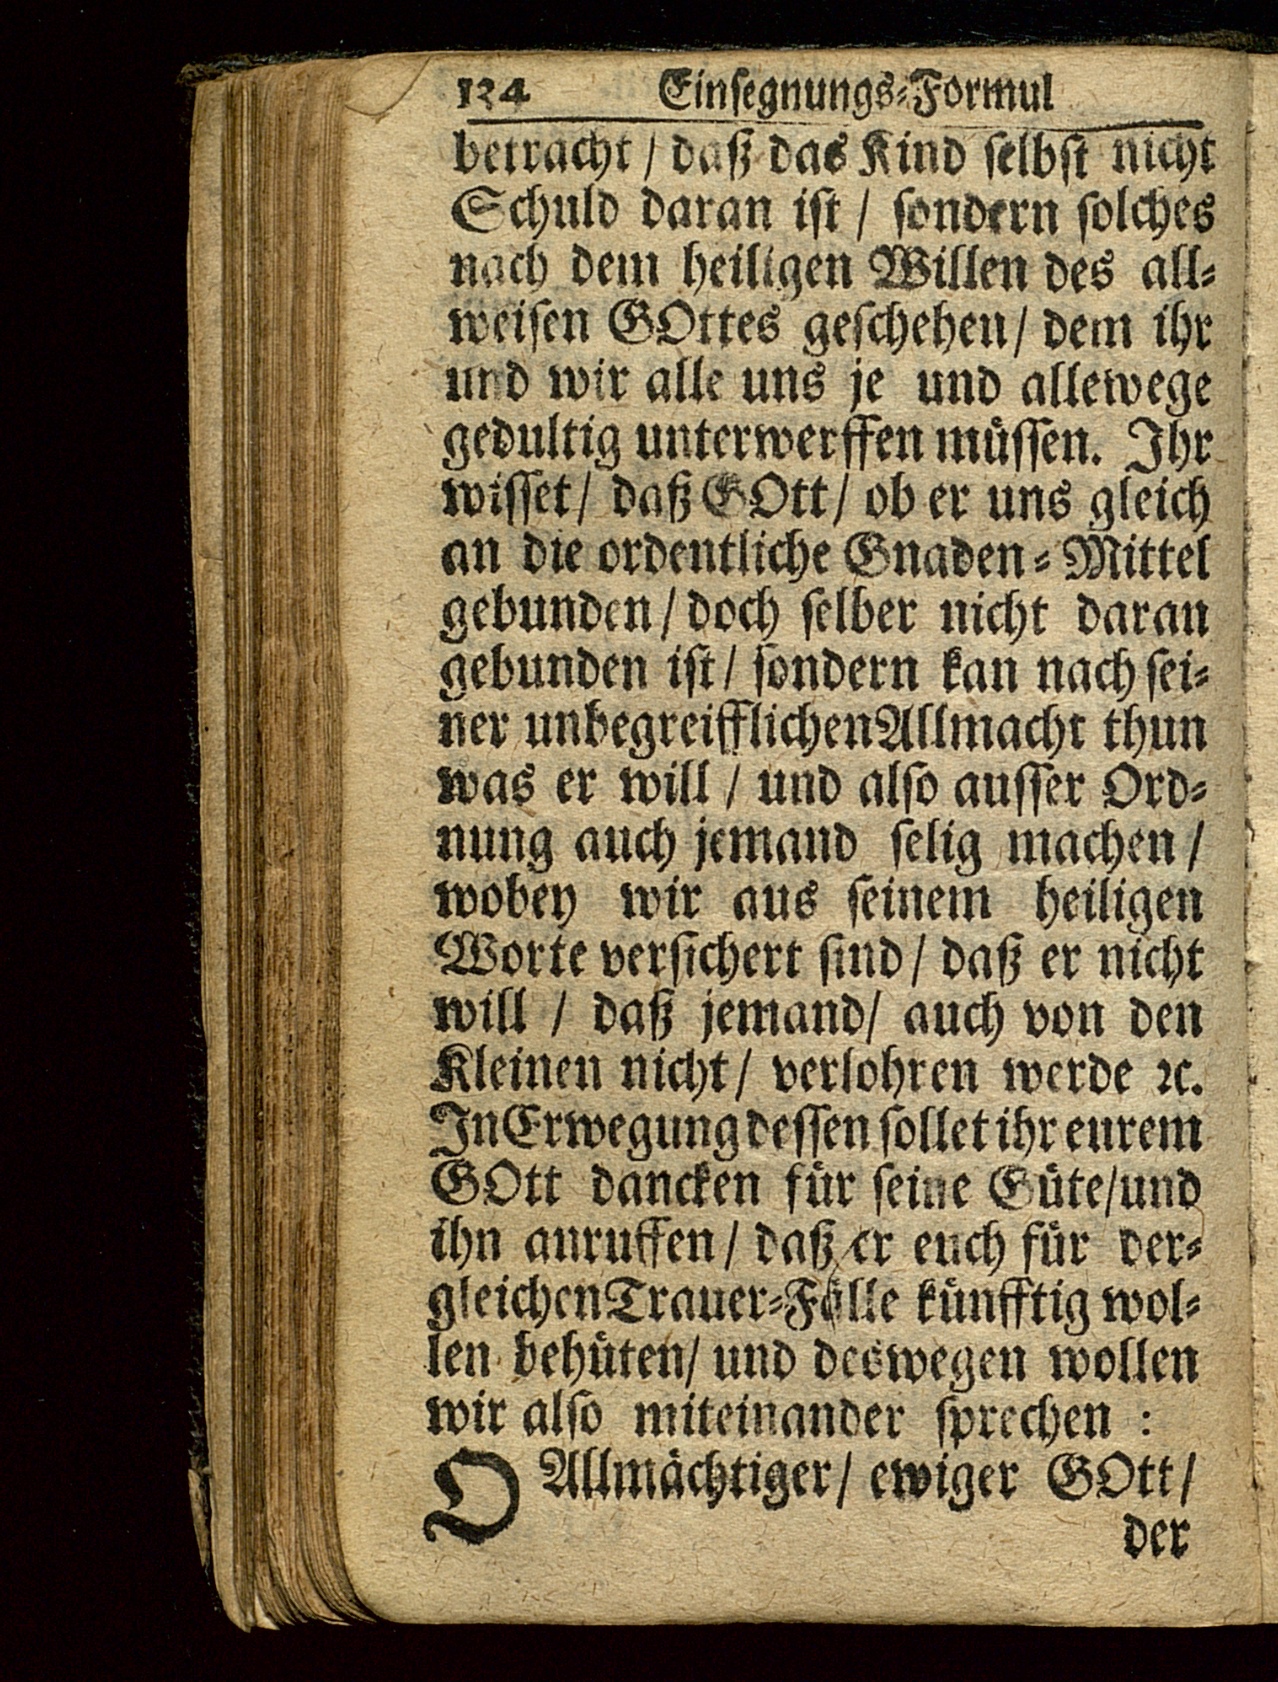 124 Einsegnungs⸗Formul
betracht / daß das Kind ſelbſt nicht
Schuld daran iſt / ſondern ſolches
nach dem heiligen Willen des all⸗
weiſen GOttes geſchehen / dem ihr
und wir alle uns je und allewege
gedultig unterwerffen müſſen. Ihr
wiſſet / daß GOtt / ob er uns gleich
an die ordentliche Gnaden⸗Mittel
gebunden / doch ſelber nicht daran
gebunden iſt / ſondern kan nach ſei⸗
ner unbegreifflichen Allmacht thun
was er will / und alſo auſſer Ord⸗
nung auch jemand ſelig machen /
wobey wir aus ſeinem heiligen
Worte verſichert ſind / daß er nicht
will / daß jemand / auch von den
Kleinen nicht / verlohren werde ꝛc.
In Erwegung deſſen ſollet ihr eurem
GOtt dancken für ſeine Güte / und
ihn anruffen / daß er euch für der⸗
gleichen Trauer⸗Fälle künfftig wol⸗
len behüten / und deswegen wollen
wir alſo miteinander ſprechen :
O Allmächtiger / ewiger GOtt /
der